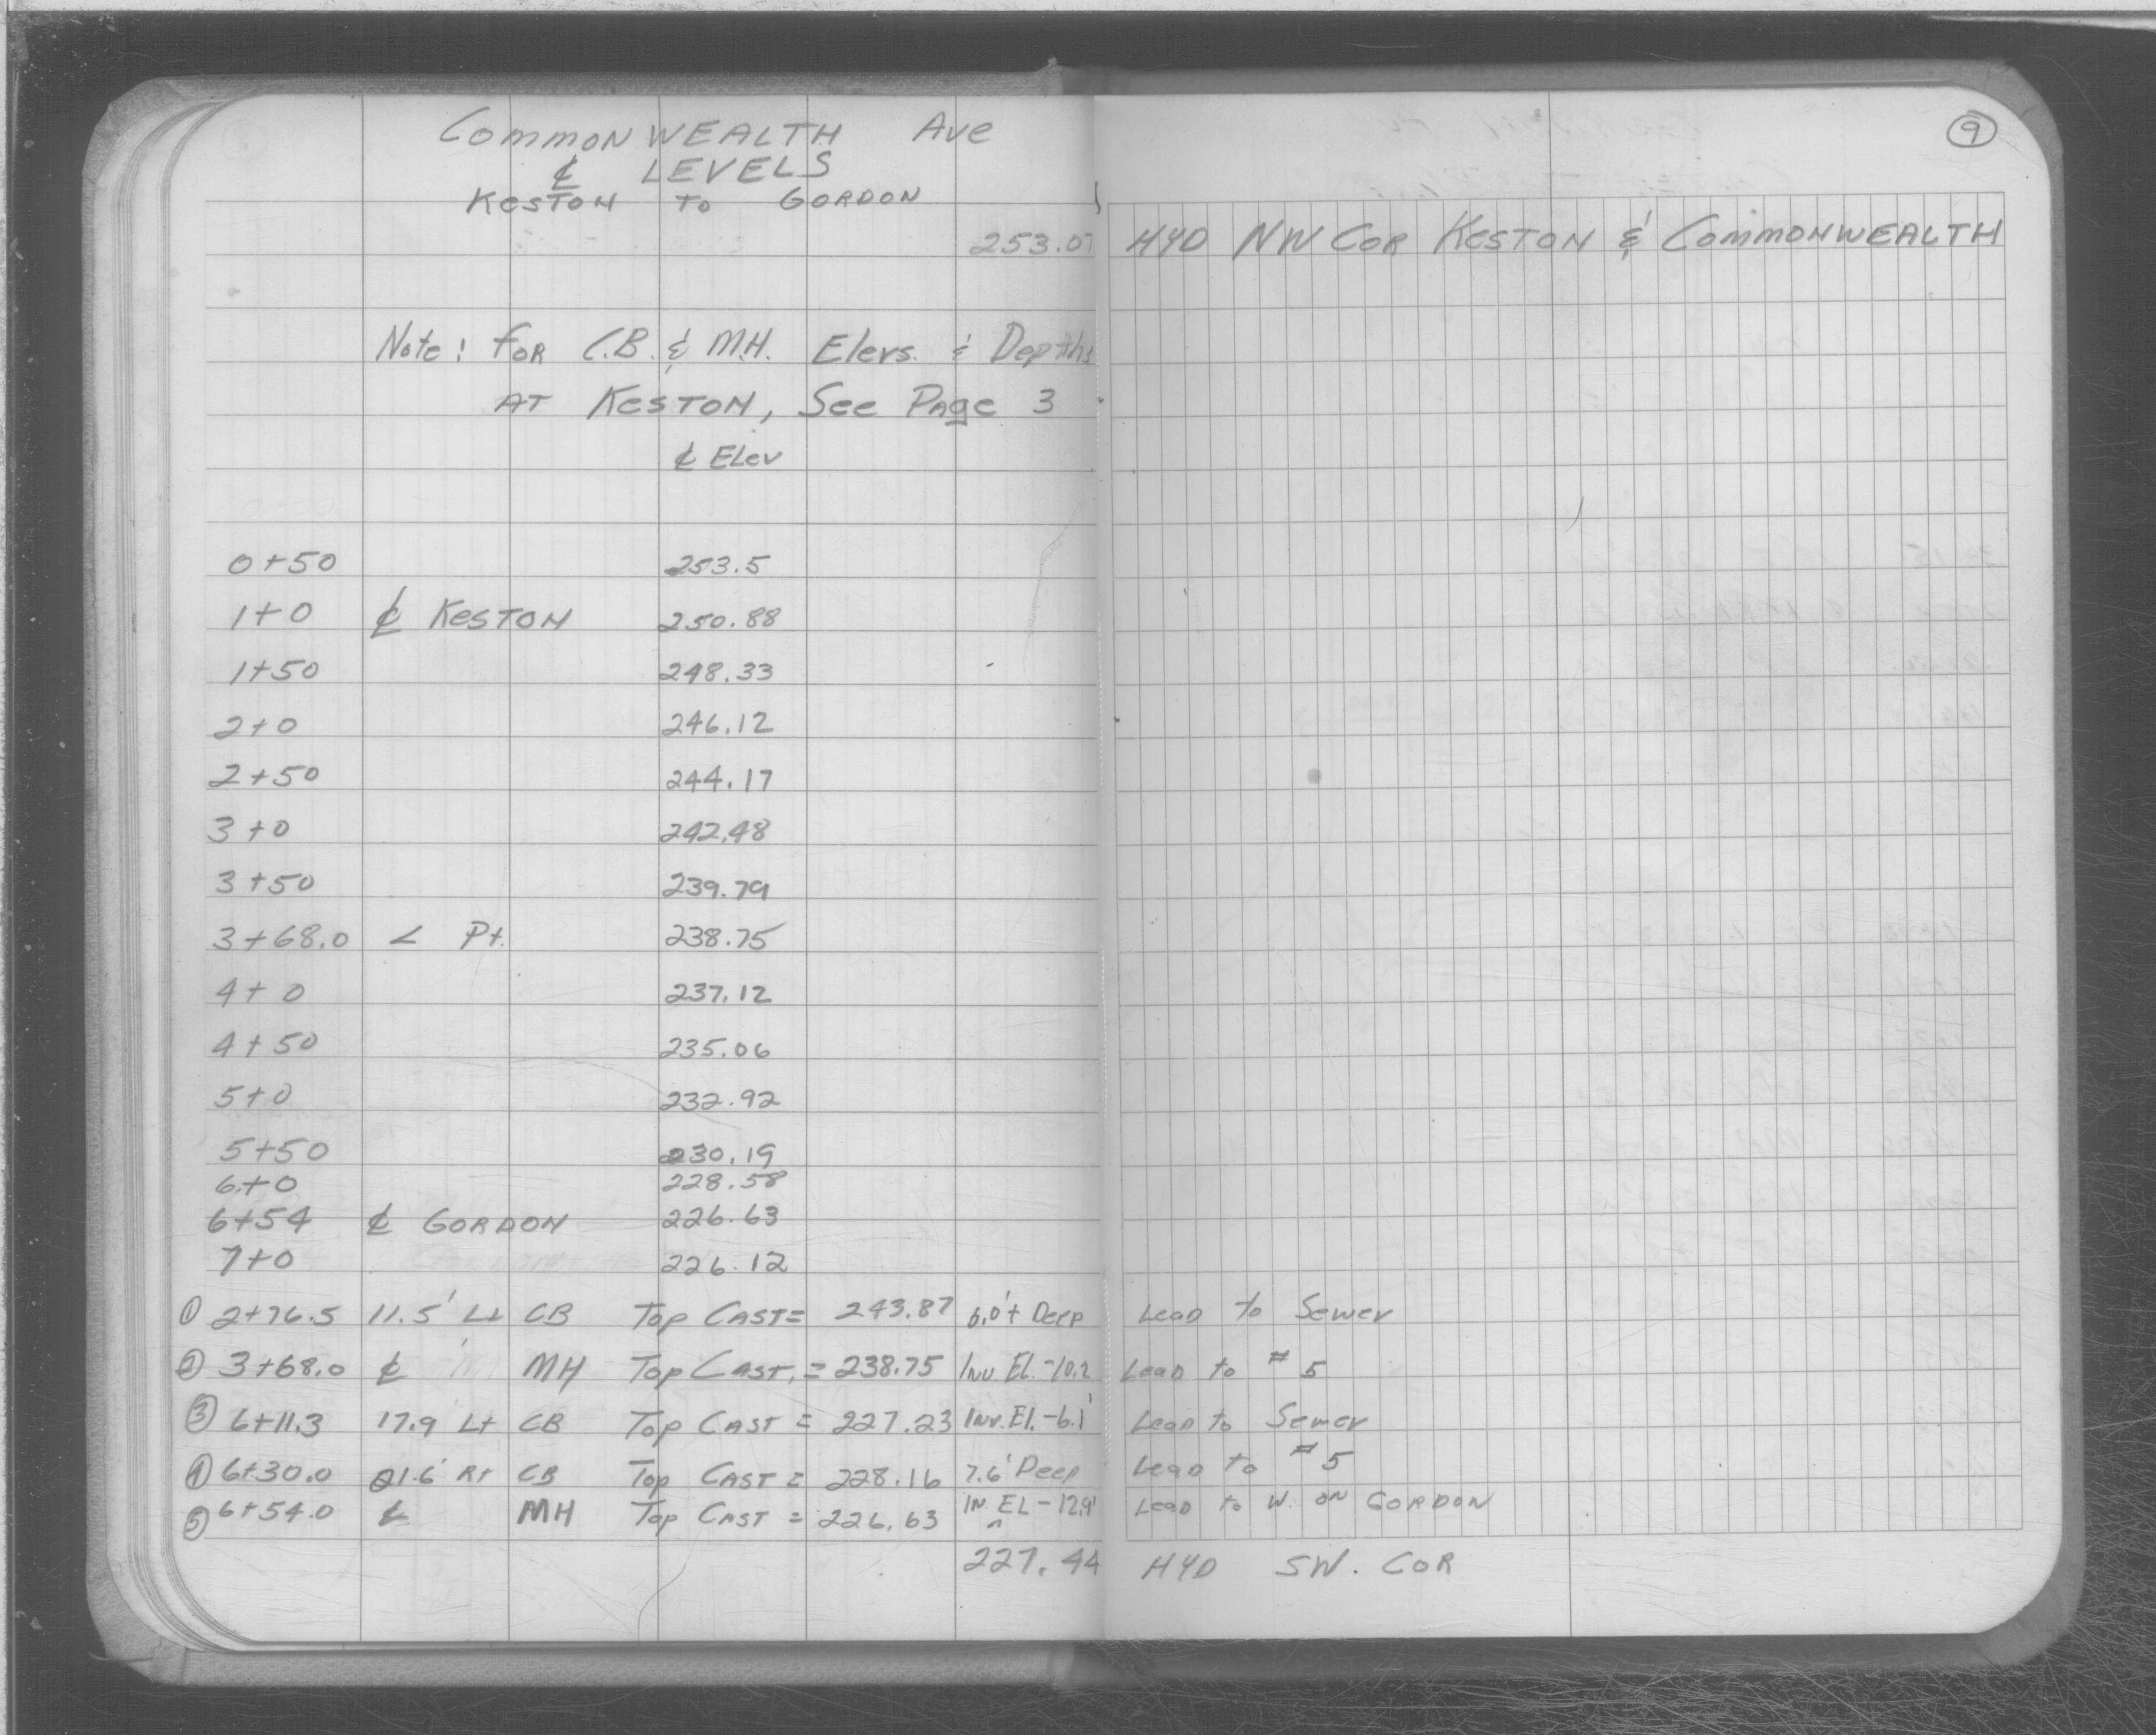 9
CommonWEALTH Ave
℄ LEVELS
KESTON To GORDON
253.07 HYD NW COR KESTON & COMMONWEALTH
Note: FOR C.B. & M.H. Elevs. & Depths
AT KESTON, See Page 3
℄ Elev
0+50 253.5
1+0 ℄ KESTON 250.88
1+50 248.33
2+0 246.12
2+50 244.17
3+0 242.48
3+50 239.79
3+68.0 < Pt. 238.75
4+0 237.12
4+50 235.06
5+0 232.92
5+50 230.19
6+0 228.58
6+54 ℄ GORDON 226.63
7+0 226.12
① 2+76.5 11.5' Lt CB Top CAST= 243.87 6.0'+ Deep Lead to Sewer
② 3+68.0 ℄ MH Top CAST. = 238.75 Inv. El. -10.2 Lead to # 5
③ 6+11.3 17.9 Lt CB Top CAST = 227.23 Inv. El. -6.1' Lead to Sewer
④ 6+30.0 21.6' Rt CB Top CAST = 228.16 7.6' Deep Lead to # 5
⑤ 6+54.0 ℄ MH Top CAST = 226.63 IN. EL - 12.9' Lead to W. ON GORDON
227.44 HYD SW. COR